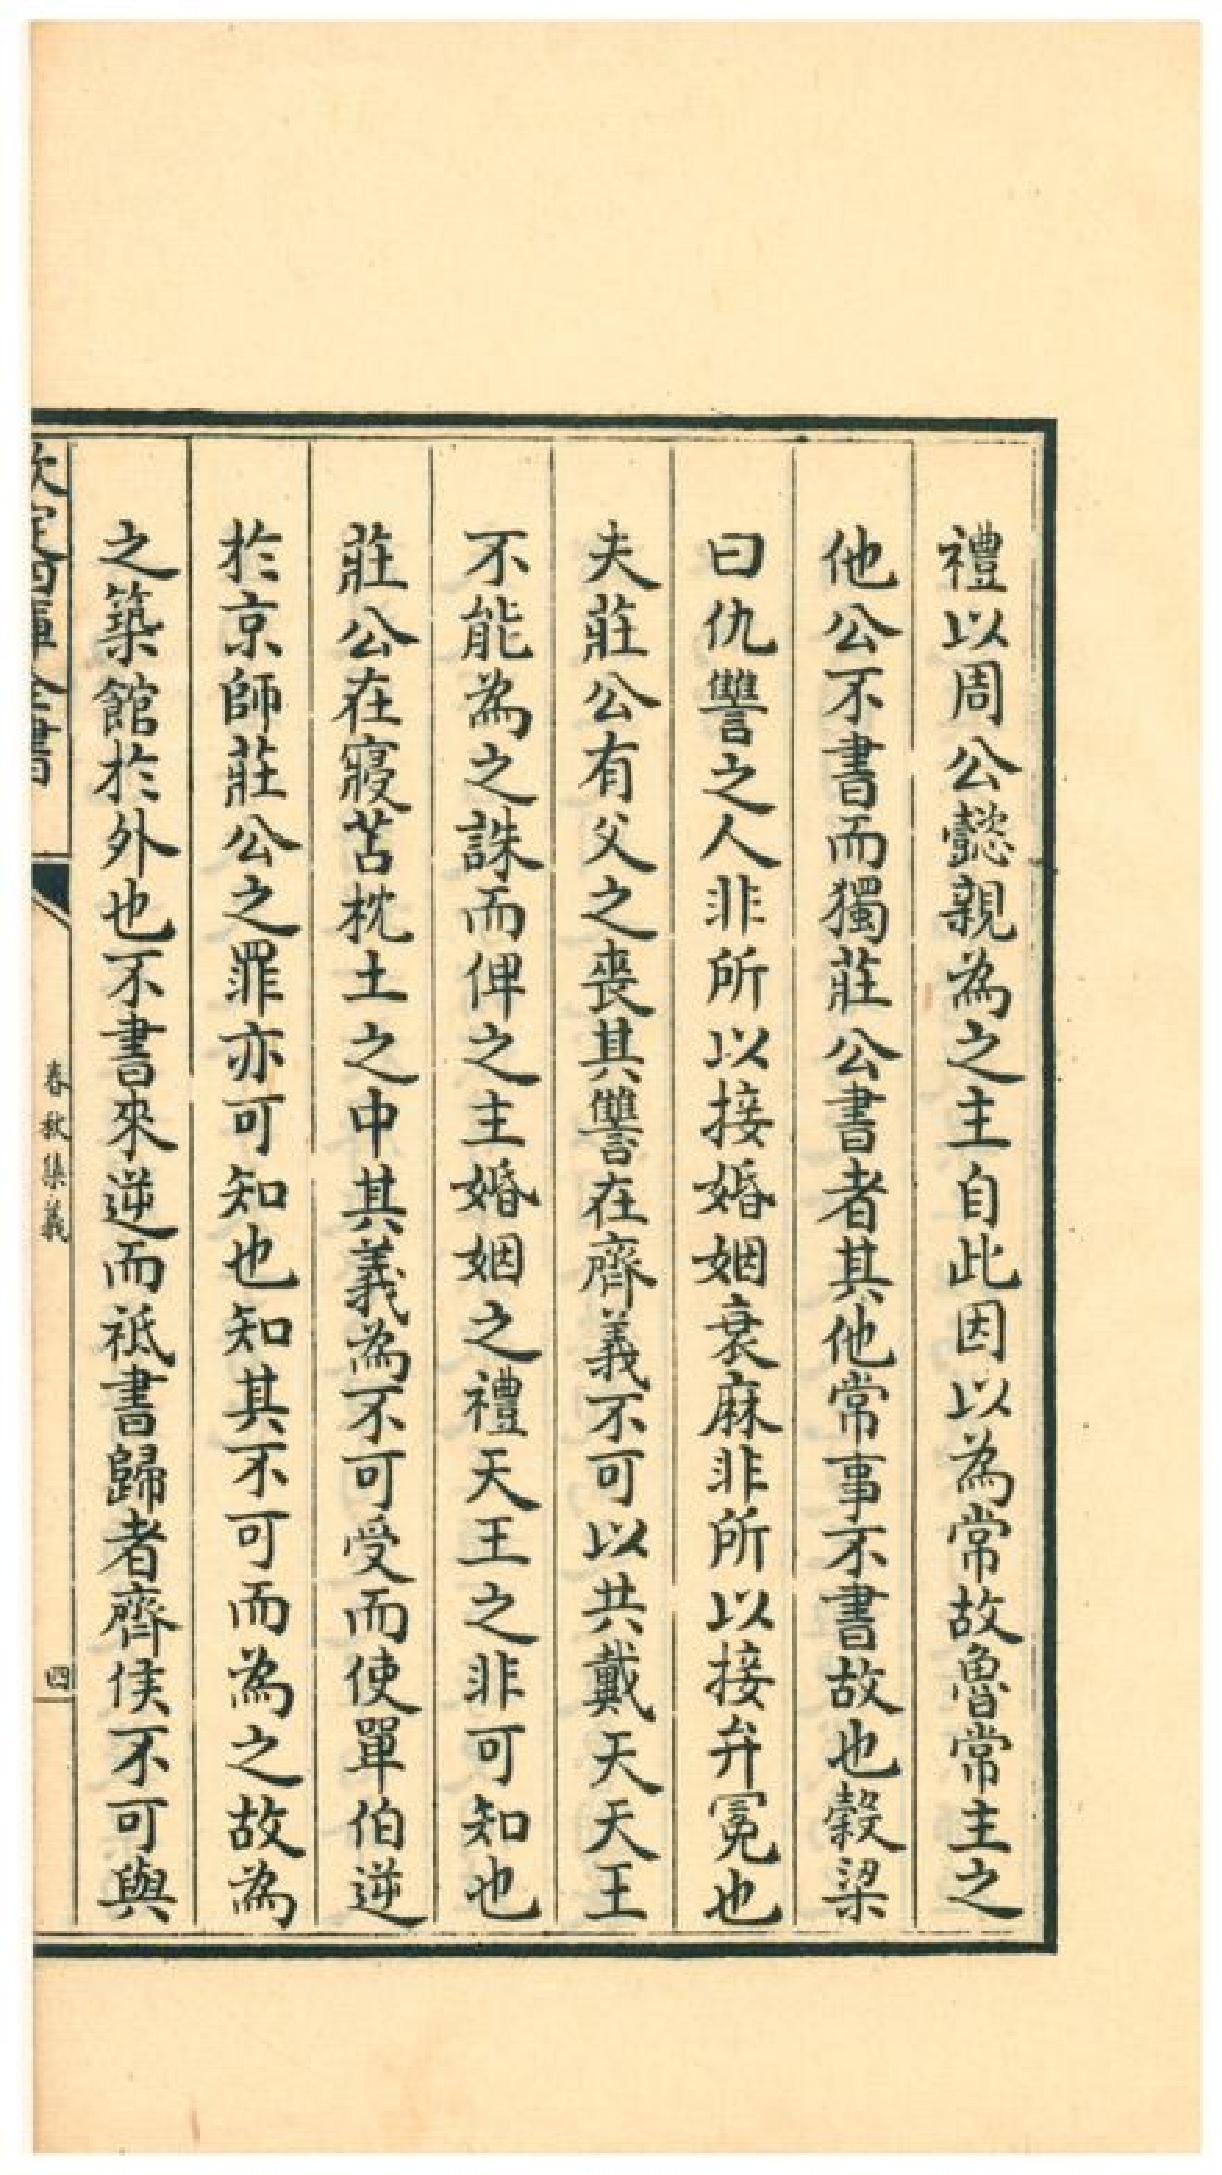 禮以周公懿親為之主自此因以為常故魯常主之
他公不書而獨莊公書者其他常事不書故也穀梁
曰仇讐之人非所以接婚姻衰麻非所以接弁冕也
夫莊公有父之喪其讐在齊義不可以共戴天天王
不能為之誅而俾之主婚姻之禮天王之非可知也
莊公在寢苫枕土之中其義為不可受而使單伯逆
於京師莊公之罪亦可知也知其不可而為之故為
之築館於外也不書來逆而祗書歸者齊侯不可與
欽定四庫全書
春秋集義
四